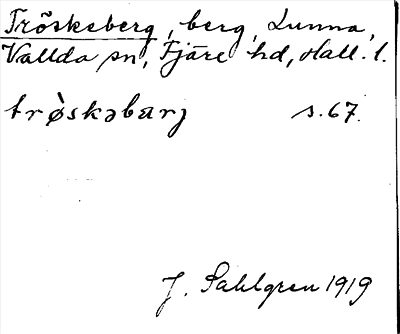 Tröskeberg, berg, Lunna,
Vallda sn, Fjäre hd, Hall. l.
trø̀skəbærj s. 67.
J. Sahlgren 1919